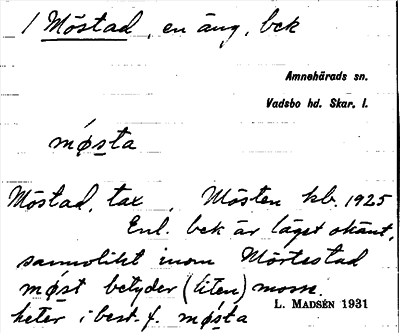 1 Möstad, en äng, bek
Amnehärads sn.
Vadsbo hd. Skar. l.
møsta
Möstad, tax, Mösten kb. 1925
Enl. bek är läget okänt,
sannolikt inom Mörtestad
møst betyder (liten) moss.
heter i best. f. møsta
L. MADSÉN 1931